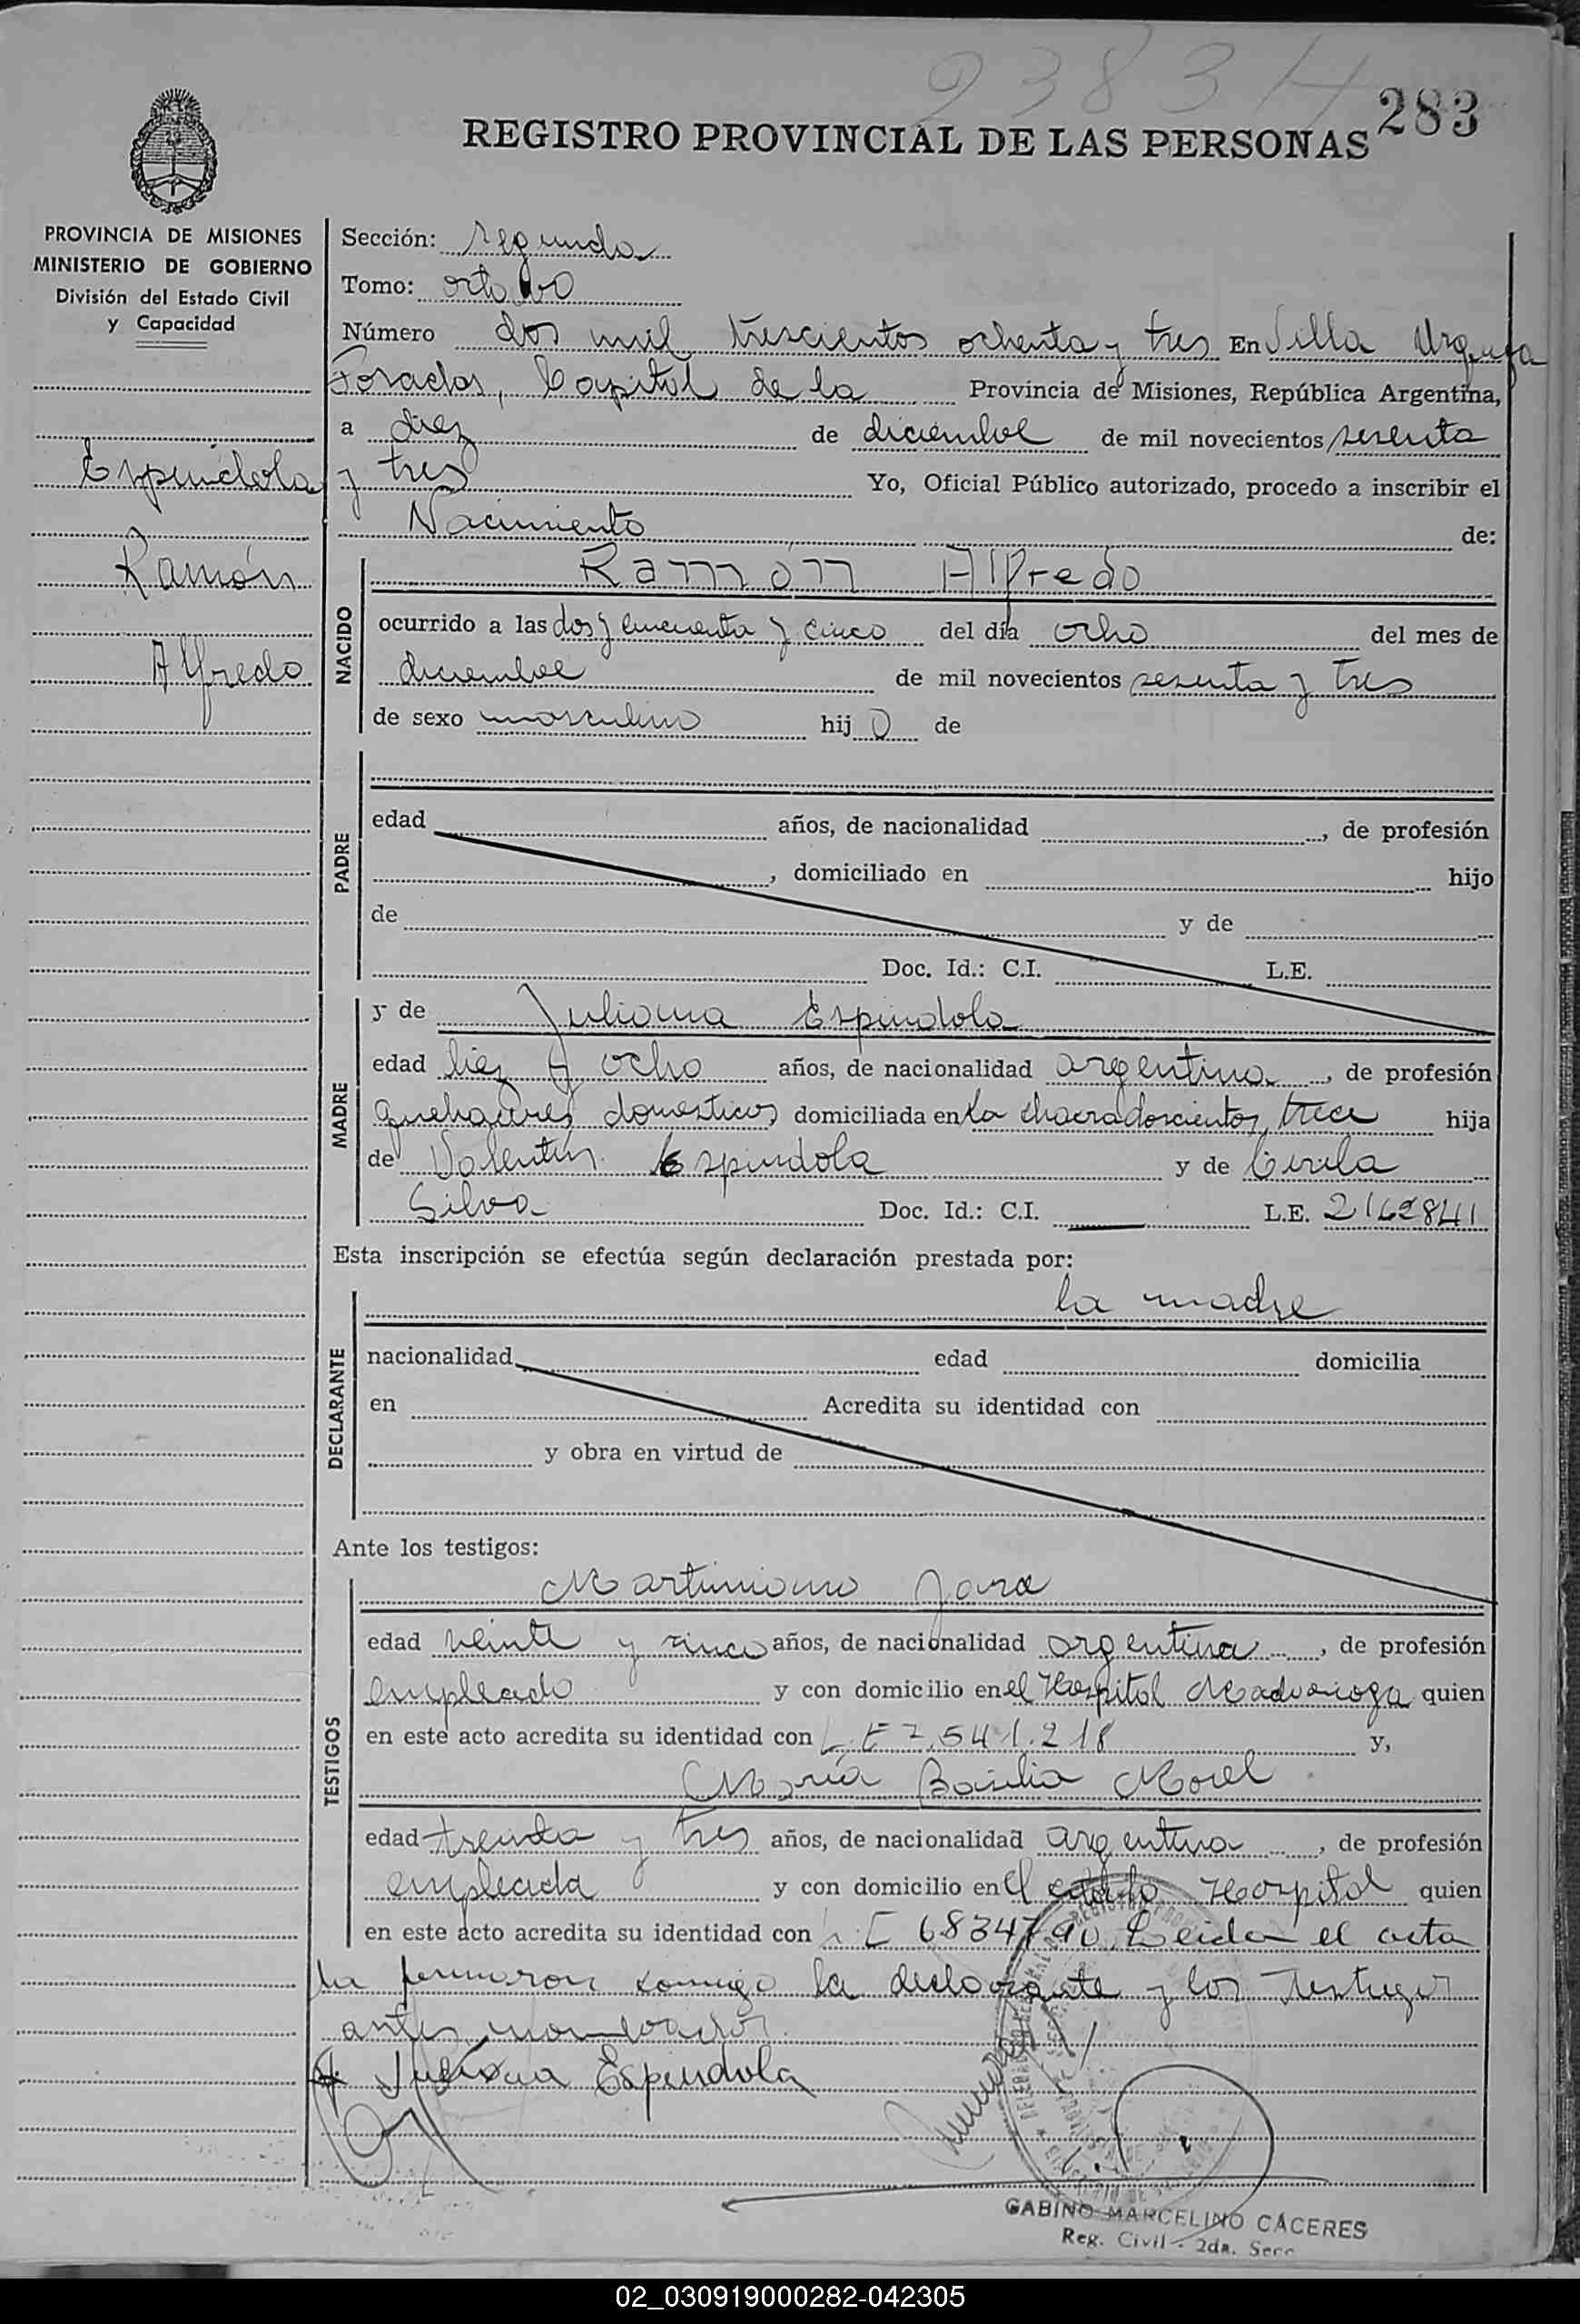 23834
283
REGISTRO PROVINCIAL DE LAS PERSONAS
PROVINCIA DE MISIONES
MINISTERIO DE GOBIERNO
División del Estado Civil
y Capacidad
Espíndola
Ramón
Alfredo
Sección: segunda
Tomo: octavo
Número dos mil trescientos ochenta y tres En Villa Urquiza
Posadas, Capital de la Provincia de Misiones, República Argentina,
a diez de diciembre de mil novecientos sesenta
y tres Yo, Oficial Público autorizado, procedo a inscribir el
Nacimiento de:
NACIDO
Ramón Alfredo
ocurrido a las dos y cincuenta y cinco del día ocho del mes de
diciembre de mil novecientos sesenta y tres
de sexo masculino hijo de
PADRE
edad años, de nacionalidad , de profesión
, domiciliado en hijo
de y de
Doc. Id.: C.I. L.E.
MADRE
y de Juliana Espindola
edad diez y ocho años, de nacionalidad argentina , de profesión
quehaceres domesticos domiciliada en la chacra doscientos trece hija
de Valentín Espindola y de Cirila
Silva Doc. Id.: C.I. L.E. 2162841
Esta inscripción se efectúa según declaración prestada por:
la madre
DECLARANTE
nacionalidad edad domicilia
en Acredita su identidad con
y obra en virtud de
Ante los testigos:
TESTIGOS
Martiniano Jara
edad veinte y cinco años, de nacionalidad argentina , de profesión
empleado y con domicilio en el Hospital Madariaga quien
en este acto acredita su identidad con L.E 7.541.218 y,
María Basilia Morel
edad treinta y tres años, de nacionalidad argentina , de profesión
empleada y con domicilio en el citado Hospital quien
en este acto acredita su identidad con L.E 6834790 Leida el acta
la firmaron conmigo la declarante y los testigos
antes nombrados
Juliana Espindola
GABINO MARCELINO CACERES
Reg. Civil - 2da. Secc
02_030919000282-042305